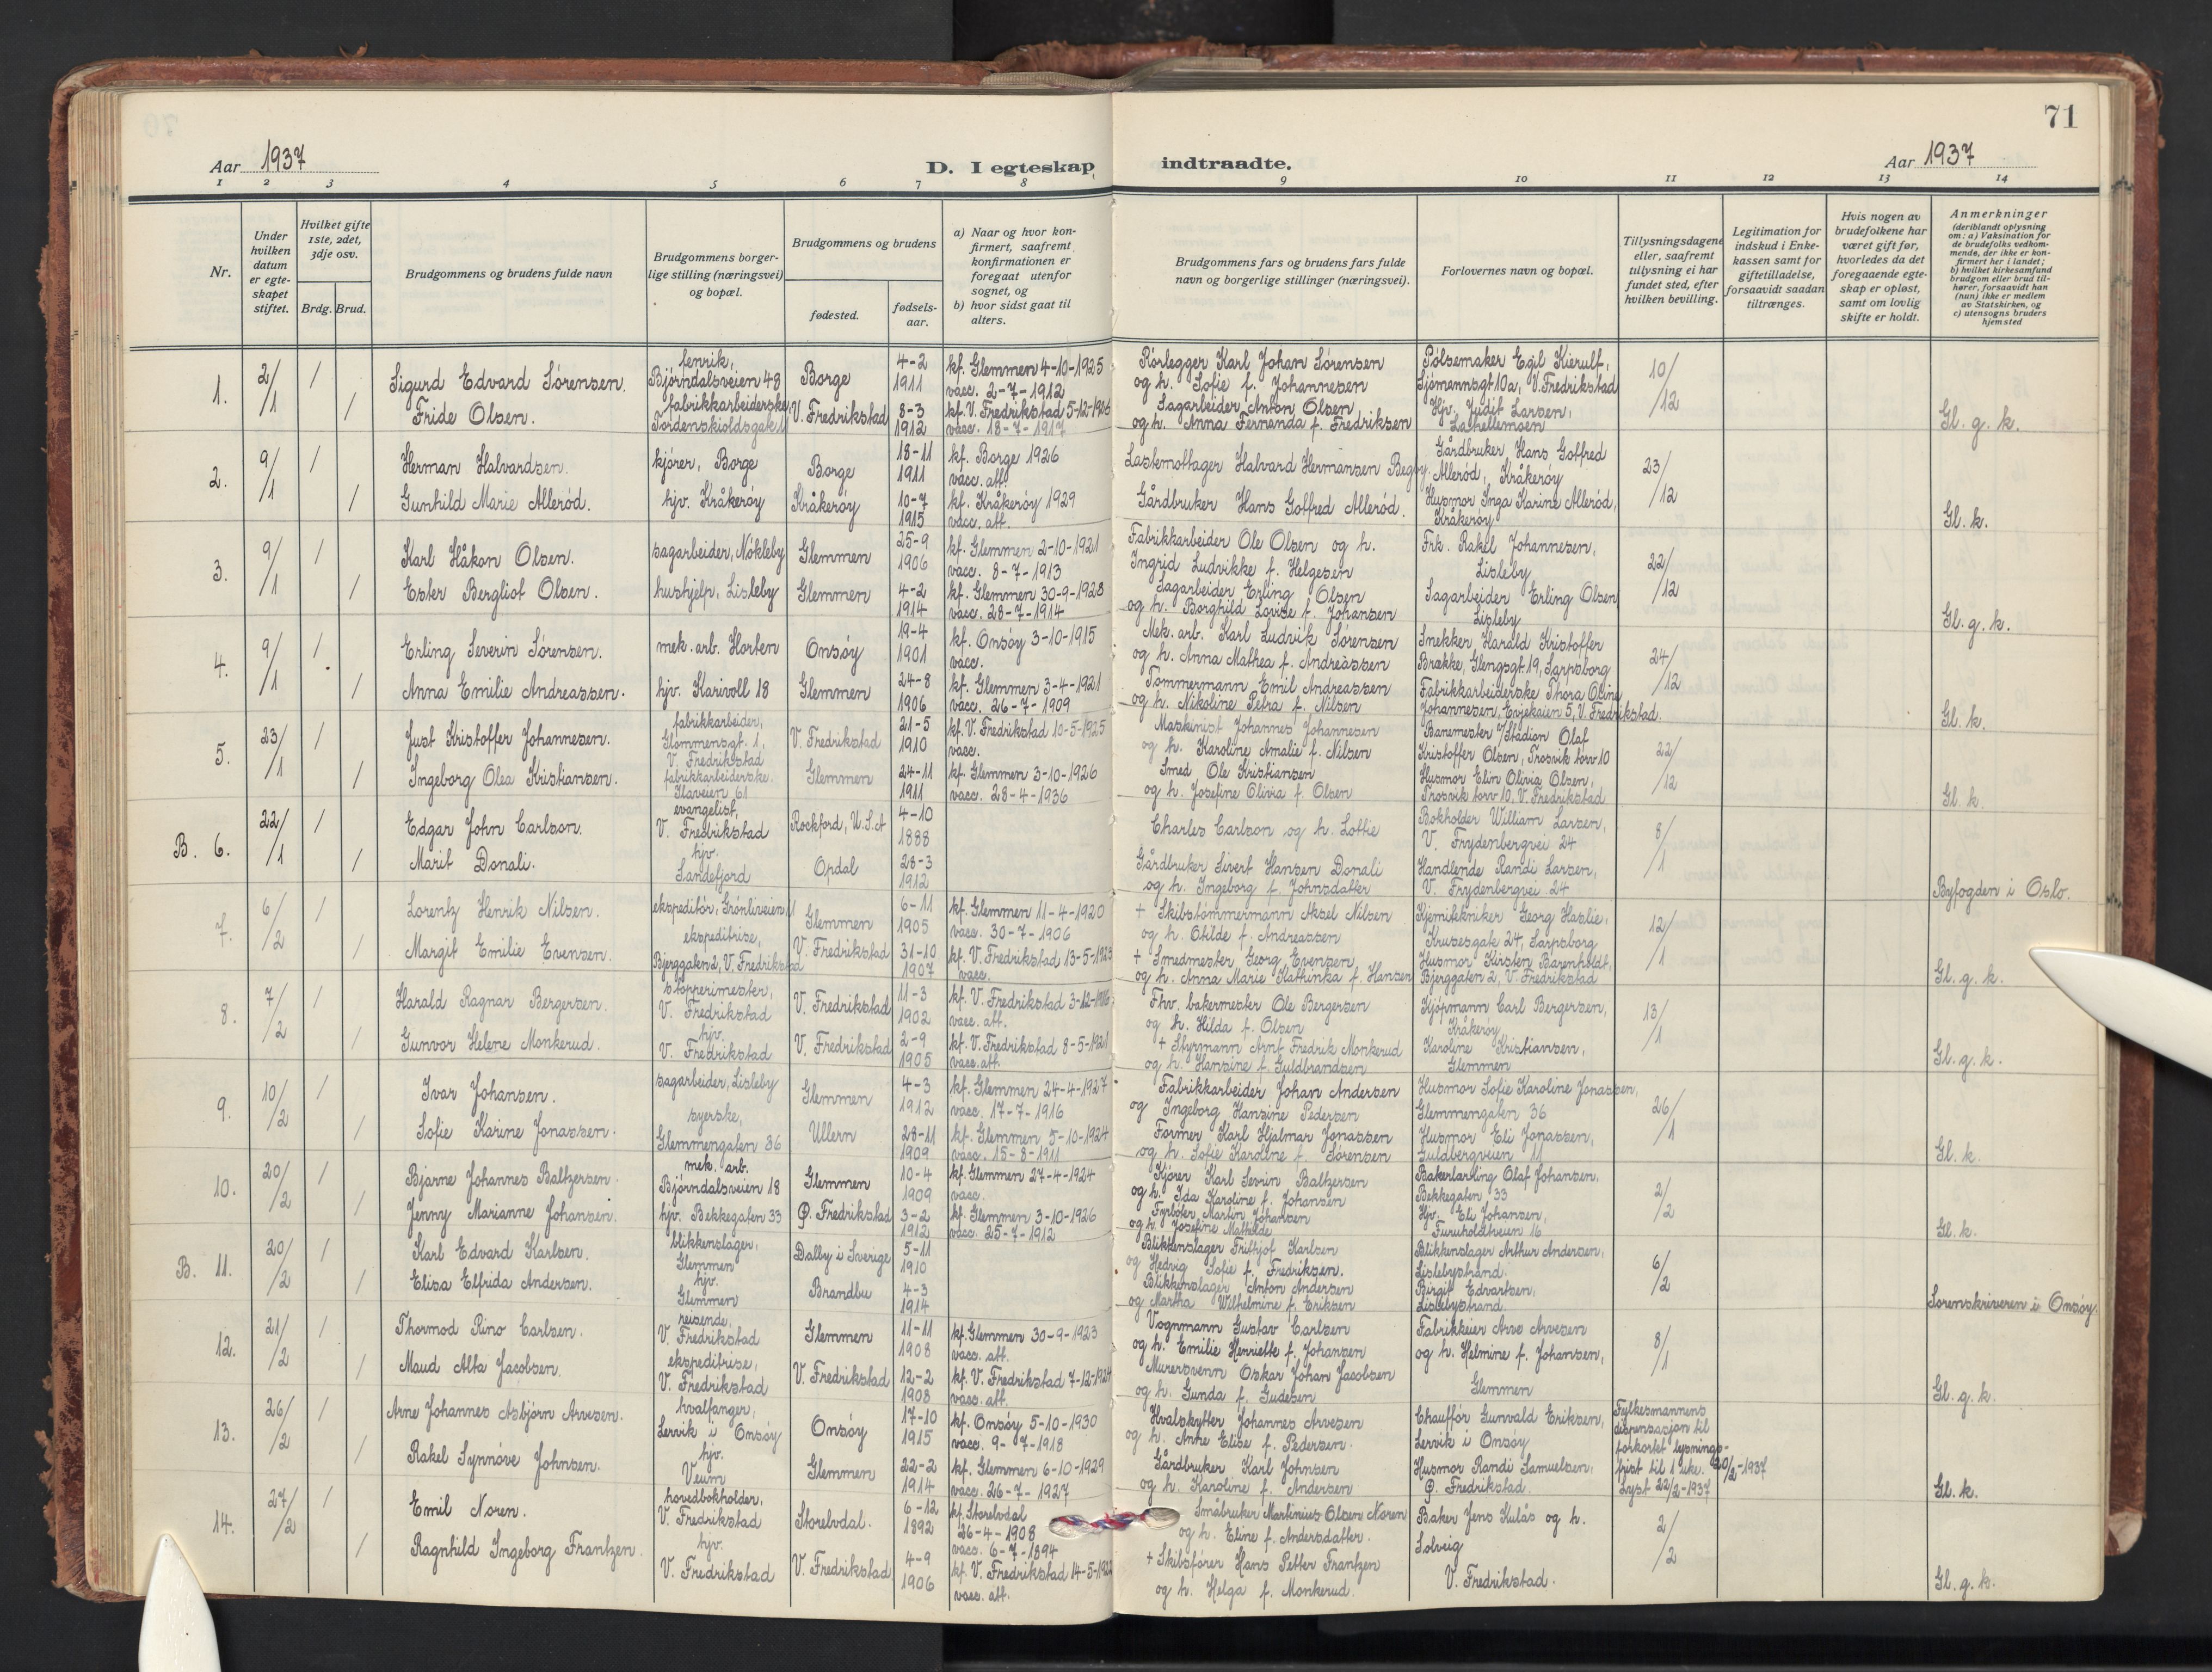 71
Aar 1937
D. I egteskap indtraadte.
Aar 1937
1 2 3 4 5 6 7 8 9 10 11 12 13 14
Nr.
Under hvilken datum er egteskapet stiftet.
Hvilket gifte 1ste, 2det, 3dje osv.
Brdg. Brud.
Brudgommens og brudens fulde navn
Brudgommens borgerlige stilling (næringsvei) og bopæl.
Brudgommens og brudens
fødested.
fødselsaar.
a) Naar og hvor konfirmert, saafremt konfirmationen er foregaat utenfor sognet, og
b) hvor sidst gaat til alters.
Brudgommens fars og brudens fars fulde navn og borgerlige stillinger (næringsvei).
Forlovernes navn og bopæl.
Tillysningsdagene eller, saafremt tillysning ei har fundet sted, efter hvilken bevilling.
Legitimation for indskud i Enkekassen samt for giftetilladelse, forsaavidt saadan tiltrænges.
Hvis nogen av brudefolkene har været gift før, hvorledes da det foregaaende egteskap er opløst, samt om lovlig skifte er holdt.
Anmerkninger (deriblandt oplysning om: a) Vaksination for de brudefolks vedkommende, der ikke er konfirmert her i landet; b) hvilket kirkesamfund brudgom eller brud tilhører, forsaavidt han (hun) ikke er medlem av Statskirken, og c) utensogns bruders hjemsted
1. 2/1 1 Sigurd Edvard Sørensen. Bjørndalsveien 48 Borge 4-2 1911 kf. Glemmen 4-10-1925 vacc. 2-7-1912 Rørlegger Karl Johan Sørensen og h. Sofie f. Johannesen Pølsemaker Egil Kierulf, Sjømannsgt 10a, V. Fredrikstad 10/12
1 Fride Olsen. fabrikkarbeiderske Tordenskioldsgak 1 V. Fredrikstad 8-3 1912 kf. V. Fredrikstad 5-12-1926 vacc. 18-7-1917 Sagarbeider Anton Olsen og h. Anna Fernanda f. Fredriksen Hjv. Judit Larsen, Lahellemoen Gl. g. k.
2. 9/1 1 Herman Halvardsen. kjører, Borge Borge 18-11 1911 kf. Borge 1926 vacc. att. Lastemottager Halvard Hermansen Begby. Gårdbruker, Hans Gotfred Allerød, Kråkerøy 23/12
1 Gunhild Marie Allerød. hjv. Kråkerøy Kråkerøy 10-7 1915 kf. Kråkerøy 1929 vacc. att. Gårdbruker Hans Gotfred Allerød. Husmor Inga Karine Allerød, Kråkerøy Gl. k.
3. 9/1 1 Karl Håkon Olsen. sagarbeider, Nøkleby Glemmen 25-9 1906 kf. Glemmen 2-10-1921 vacc. 8-7-1913 Fabrikkarbeider Ole Olsen og h. Ingrid Ludvikke f. Helgesen Frk. Rakel Johannesen, Lisleby 22/12
1 Ester Bergliot Olsen. hushjelp, Lisleby Glemmen 4-2 1914 kf. Glemmen 30-9-1928 vacc. 28-7-1914 Sagarbeider Erling Olsen og h. Borghild Lovise f. Johansen Sagarbeider Erling Olsen Lisleby Gl. g. k.
4. 9/1 1 Erling Severin Sørensen. mek. arb. Horten Onsøy 19-4 1901 kf. Onsøy 3-10-1915 vacc. Mek. arb. Karl Ludvik Sørensen og h. Anna Mathea f. Andreassen Snekker Harald Kristoffer Brække, Glengsgt. 19, Sarpsborg 24/12
1 Anna Emilie Andreassen. hjv. Karivoll 18 Glemmen 24-8 1906 kf. Glemmen 3-4-1921 vacc. 26-7-1909 Tømmermann Emil Andreassen og h. Nikoline Petra f. Nilsen Fabrikkarbeiderske Thora Oline Johannesen, Evjekaien 5, V. Fredrikstad. Gl. k.
5. 23/1 1 Just Kristoffer Johannesen. fabrikkarbeider, Glommensgt. 1, V. Fredrikstad V. Fredrikstad 21-5 1910 kf. V. Fredrikstad 10-5-1925 vacc. Maskinist Johannes Johannesen og h. Karoline Amalie f. Nilsen Banemester v/Stadion Olaf Kristoffer Olsen, Trosvik torv 10 22/12
1 Ingeborg Olea Kristiansen. fabrikkarbeiderske. Ilaveien 61 Glemmen 24-11 1911 kf. Glemmen 3-10-1926 vacc. 28-4-1936 Smed Ole Kristiansen og h. Josefine Olivia f. Olsen Husmor Elin Olivia Olsen, Trosvik torv 10, V. Fredrikstad Gl. k.
B. 6. 22/1 1 Edgar John Carlson. evangelist, V. Fredrikstad Rockford, U.S.A 4-10 1888 Charles Carlson og h. Lottie Bokholder William Larsen, V. Frydenbergvei 24 8/1
1 Marit Donali. hjv. Sandefjord Opdal 28-3 1912 Gårdbruker Sivert Hansen Donali og h. Ingeborg f. Johnsdatter Handlende Randi Larsen, V. Frydenbergvei 24 Byfogden i Oslo.
7. 6/2 1 Lorentz Henrik Nilsen. ekspeditør, Grønliveien 1 Glemmen 6-11 1905 kf. Glemmen 11-4-1920 vacc. 30-7-1906 + Skibstømmermann Aksel Nilsen og h. Otilde f. Andreassen Kjemitekniker Georg Haslie, Krusesgate 24, Sarpsborg 12/1
1 Margit Emilie Evensen. ekspeditrise, Bjerggaten 2, V. Fredrikstad V. Fredrikstad 31-10 1907 kf. V. Fredrikstad 13-5-1923 vacc. + Smedmester Georg Evensen og h. Anna Marie Kathinka f. Hansen Husmor Kirsten Barenholdt, Bjerggaten 2, V. Fredrikstad Gl. g. k.
8. 7/2 1 Harald Ragnar Bergersen. stopperimester, V. Fredrikstad V. Fredrikstad 11-3 1902 kf. V. Fredrikstad 3-12-1916 vacc. att. Fhv. bakermester Ole Bergersen og h. Hilda f. Olsen Kjøpmann Carl Bergersen, Kråkerøy 13/1
1 Gunvor Helene Monkerud. hjv. V. Fredrikstad V. Fredrikstad 2-9 1905 kf. V. Fredrikstad 8-5-1921 vacc. att. + Styrmann Arnt Fredrik Monkerud og h. Hansine f. Guldbrandsen Karoline Kristiansen, Glemmen Gl. g. k.
9. 10/2 1 Ivar Johansen. sagarbeider, Lisleby Glemmen 4-3 1912 kf. Glemmen 24-4-1927 vacc. 17-7-1916 Fabrikkarbeider Johan Andersen og Ingeborg Hansine Pedersen Husmor Sofie Karoline Jonassen, Glemmengaten 36 26/1
1 Sofie Karine Jonassen. syerske, Glemmengaten 36 Ullern 28-11 1909 kf. Glemmen 5-10-1924 vacc. 15-8-1911 Former Karl Hjalmar Jonassen og h. Sofie Karoline f. Sørensen Husmor Eli Jonassen, Guldbergveien 11 Gl. k.
10. 20/2 1 Bjarne Johannes Baltzersen. mek. arb. Bjørndalsveien 18 Glemmen 10-4 1909 kf. Glemmen 27-4-1924 vacc. Kjører Karl Sevrin Baltzersen og h. Ida Karoline f. Johansen Bakerlærling Olaf Johansen, Bekkegaten 33 2/2
1 Jenny Marianne Johansen. hjv. Bekkegaten 33 Ø. Fredrikstad 3-2 1912 kf. Glemmen 3-10-1926 vacc. 25-7-1912 Fyrbøter Martin Johansen og h. Josefine Mathilde Hjv. Eli Johansen, Furuholdtveien 16 Gl. k.
B. 11. 20/2 1 Karl Edvard Karlsen. blikkenslager, Glemmen Dalby i Sverige 5-11 1910 Blikkenslager Frithjof Karlsen og Hedvig Sofie f. Fredriksen. Blikkenslager Arthur Andersen, Lislebystrand. 6/2
1 Elisa Elfrida Andersen. hjv. Glemmen Brandbu 4-3 1914 Blikkenslager Anton Andersen og Martha Wilhelmine f. Eriksen Birgit Edvartsen, Lislebystrand Sorenskriveren i Onsøy.
12. 21/2 1 Thormod Rino Carlsen. reisende, V. Fredrikstad Glemmen 11-11 1908 kf. Glemmen 30-9-1923 vacc. att. Vognmann Gustav Carlsen og h. Emilie Henriette f. Johansen Fabrikkeier Arve Arvesen og h. Helmine f. Johansen, 8/1
1 Maud Alta Jacobsen. ekspeditrise, V. Fredrikstad V. Fredrikstad 12-2 1908 kf. V. Fredrikstad 7-12-1924 vacc. att. Murersvenn Oskar Johan Jacobsen og h. Gunda f. Gudesen Glemmen Gl. g. k.
13. 26/2 1 Arne Johannes Asbjørn Arvesen. hvalfanger, Lervik i Onsøy Onsøy 17-10 1915 kf. Onsøy 5-10-1930 vacc. 9-7-1918 Hvalskytter Johannes Arvesen og h. Anne Elise f. Pedersen. Chauffør Gunvald Eriksen, Lervik i Onsøy Fylkesmannens dispensasjon til forkortet lysningsfrist til 1 uke. 20/2-1937 Lyst 22/2-1937
1 Rakel Synnøve Johnsen. hjv. Veum Glemmen 22-2 1914 kf. Glemmen 6-10-1929 vacc. 26-7-1927 Gårdbruker Karl Johnsen og h. Karoline f. Andersen Husmor Randi Samuelsen, Ø. Fredrikstad. Gl. k.
14. 27/2 1 Emil Noren. hovedbokholder, V. Fredrikstad Storelvdal. 6-12 1892 kf. Storelvdal 26-4-1908 vacc. 6-7-1894 Småbruker Martinius Olsen Noren og h. Eline f. Andersdatter. Baker Jens Kulås og h. Solveig 2/2
1 Ragnhild Ingeborg Frantzen. hjv. V. Fredrikstad V. Fredrikstad 4-9 1906 kf. V. Fredrikstad 14-5-1922 vacc. att. + Skibsfører Hans Petter Frantzen og h. Helga f. Monkerud. V. Fredrikstad. Gl. g. k.